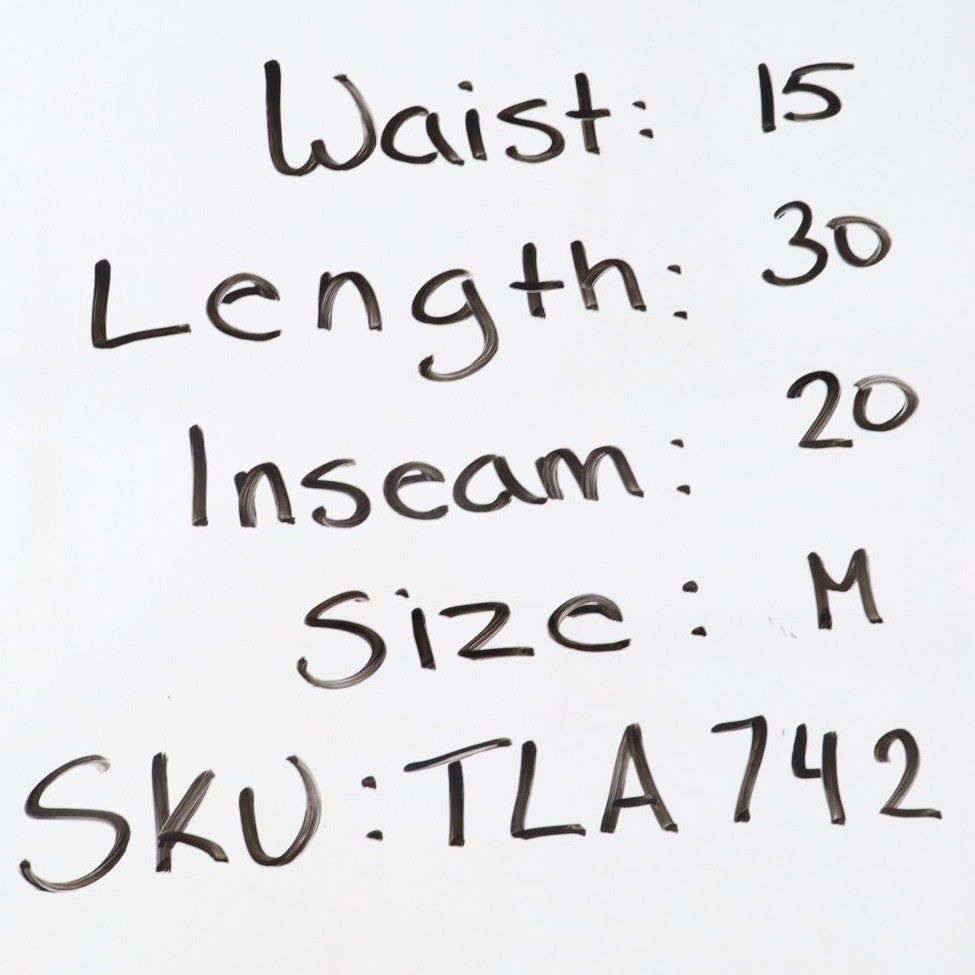 Waist: 15
Length: 30
Inseam: 20
Size: M
SKU: TLA 742